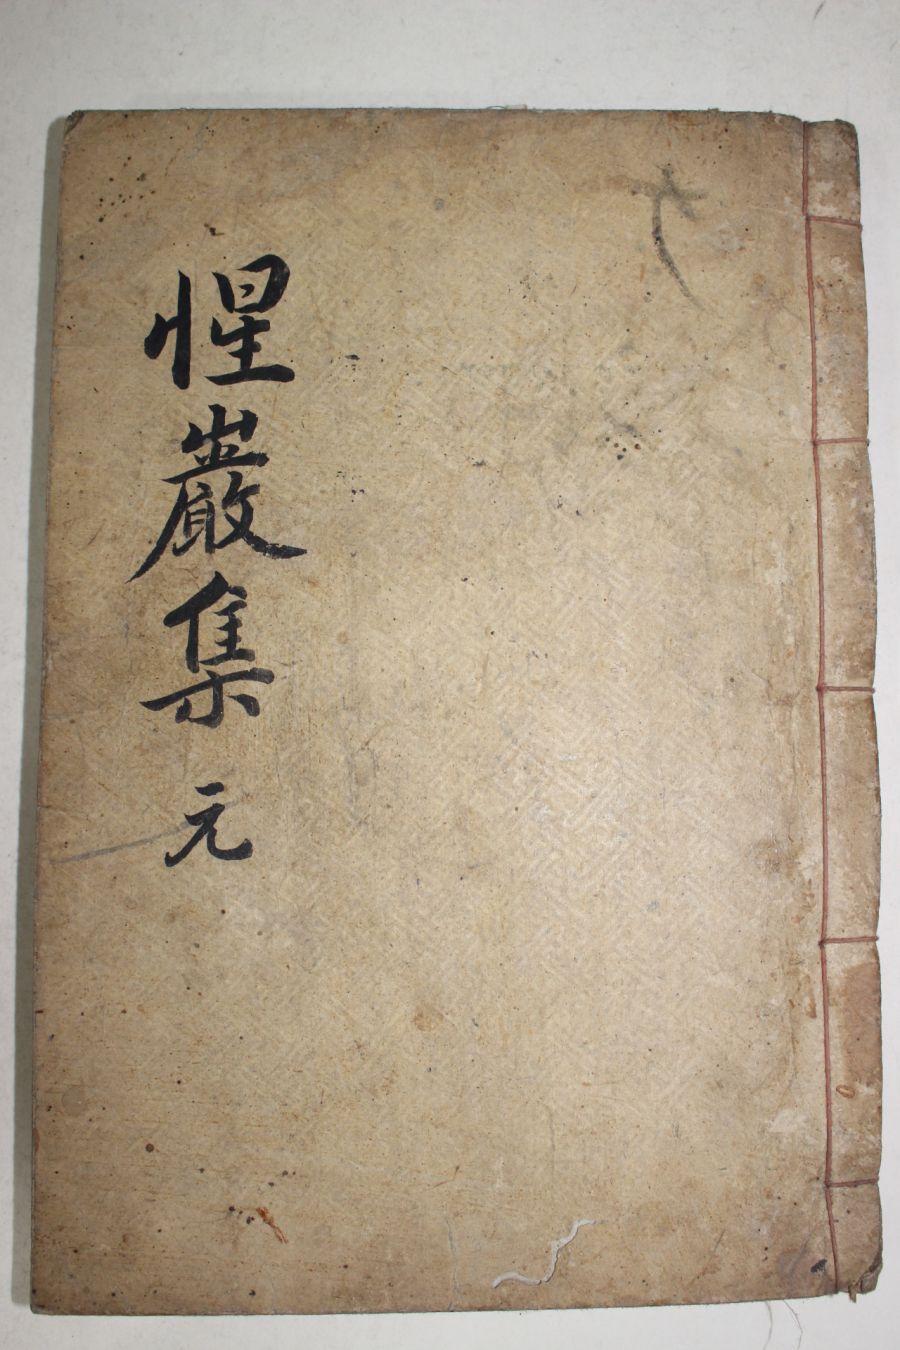 惺巖集 元